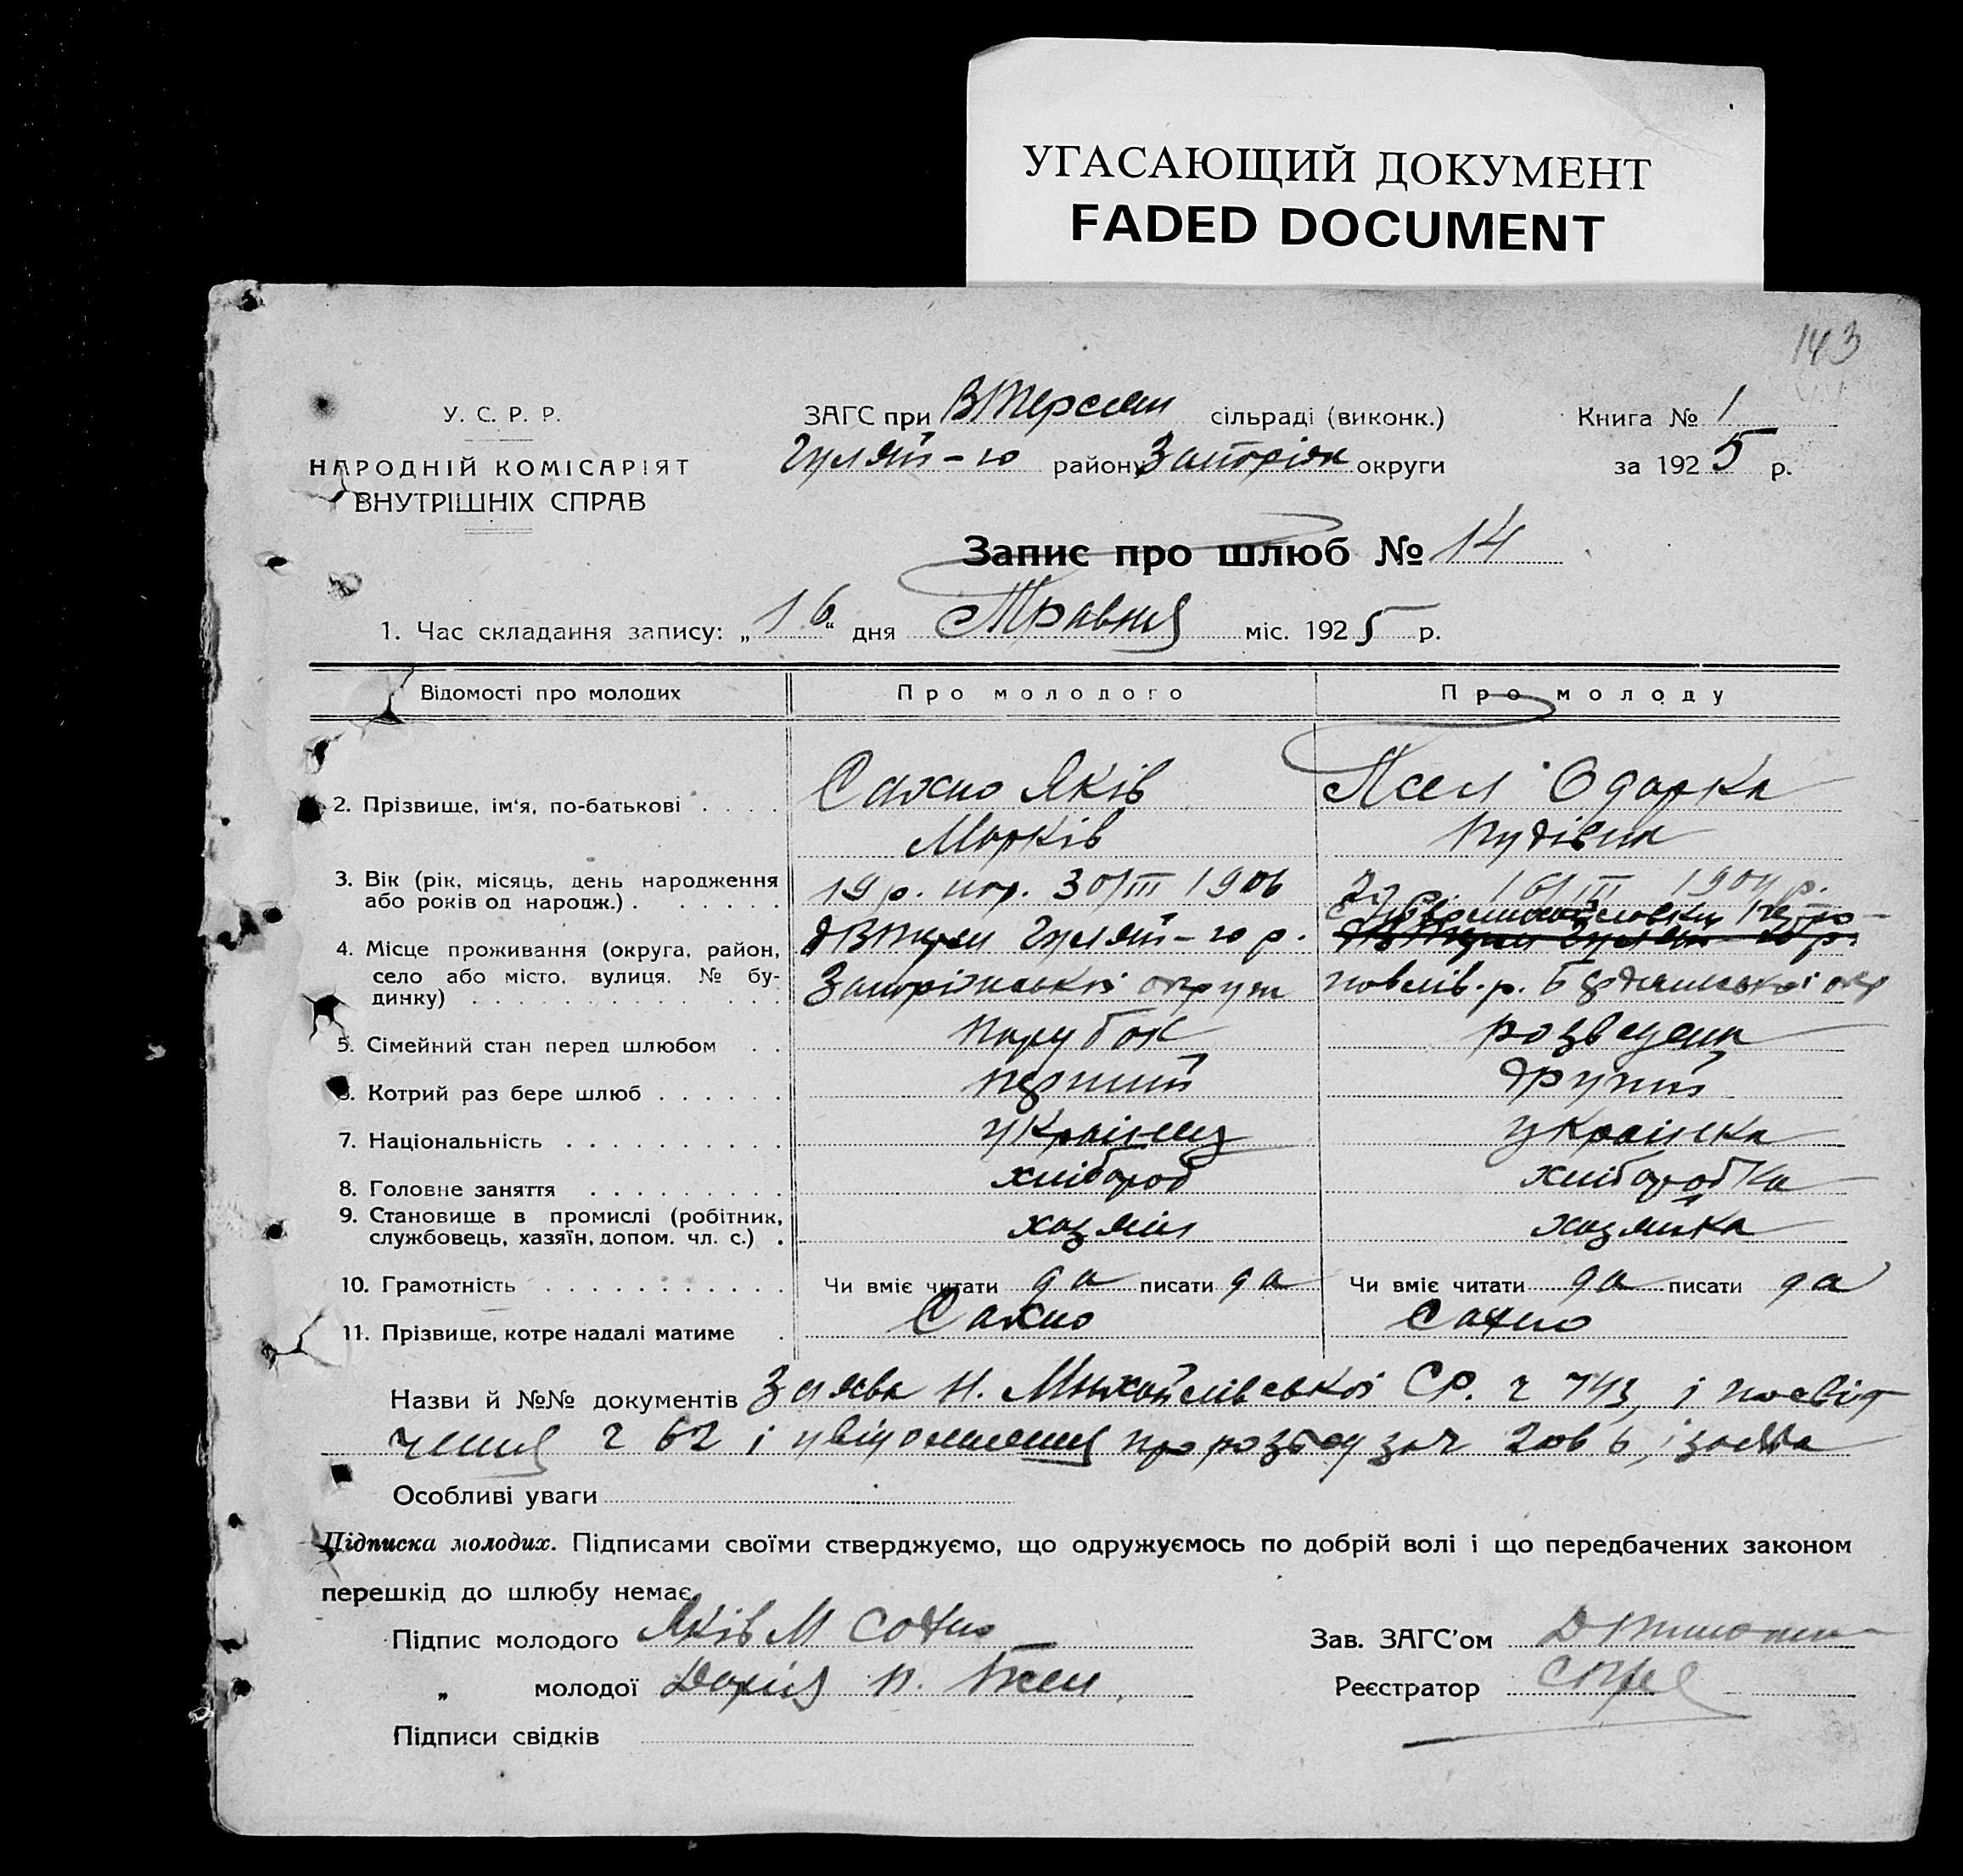 УГАСАЮЩИЙ ДОКУМЕНТ
FADED DOCUMENT
143
У. С. Р. Р.
НАРОДНІЙ КОМІСАРІЯТ
ВНУТРІШНІХ СПРАВ
ЗАГС при ВТерсян сільраді (виконк.)
Гуляй-го району Запоріж округи
Книга № 1
за 1925 р.
Запис про шлюб № 14
1. Час складання запису: „16“ дня Травня міс. 1925 р.
Відомості про молодих Про молодого Про молоду
2. Прізвище, ім'я, по-батькові . . . . Сахно Яків Псел Одарка
Марків
3. Вік (рік, місяць, день народження 19 р. нар. 30/III 1906 16/III 1904 р.
або років од народж.) . . . . . .
4. Місце проживання (округа, район, Гуляй-го р.
село або місто, вулиця, № бу- Запоріжської округи Бердянської окр
динку) . . . . . . . . . . . . . .
5. Сімейний стан перед шлюбом . . парубок розведена
6. Котрий раз бере шлюб . . . . . . перший другий
7. Національність . . . . . . . . . . українець українка
8. Головне заняття . . . . . . . . . хлібороб хліборобка
9. Становище в промислі (робітник, хазяїн хазяйка
службовець, хазяїн, допом. чл. с.) .
10. Грамотність . . . . . . . . . . . Чи вміє читати да писати да Чи вміє читати да писати да
11. Прізвище, котре надалі матиме . Сахно Сахно
Назви й №№ документів Заява Н. Михайлівської С.Р. ч 743, і посвід
чення ч 62 і про розвод зач і заява
Особливі уваги
Підписка молодих. Підписами своїми стверджуємо, що одружуємось по добрій волі і що передбачених законом
перешкід до шлюбу немає.
Підпис молодого Яків М Сахно Зав. ЗАГС'ом
„ молодої Дарія П. Реєстратор
Підписи свідків